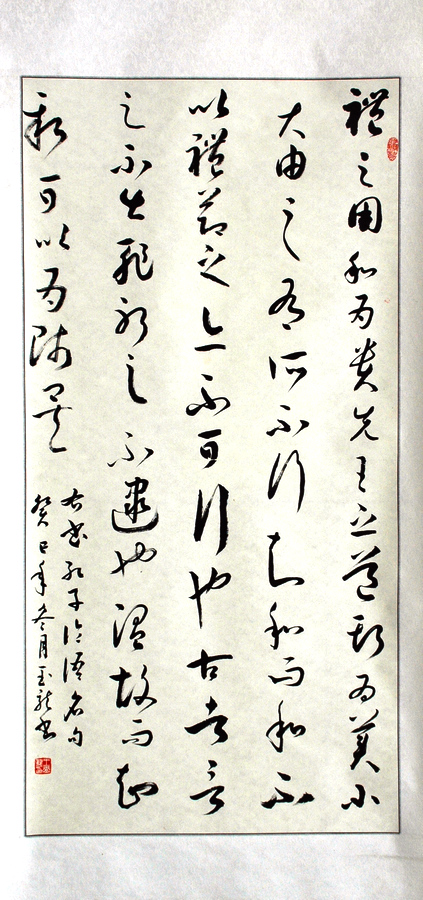 禮之用和為貴先王之道斯為美小
大由之有所不行知和而和不
以禮節之亦不可行也古者言
之不出恥躬之不逮也温故而知
新可以為師矣
右書孔子論語名句
癸巳年冬月玉龍書